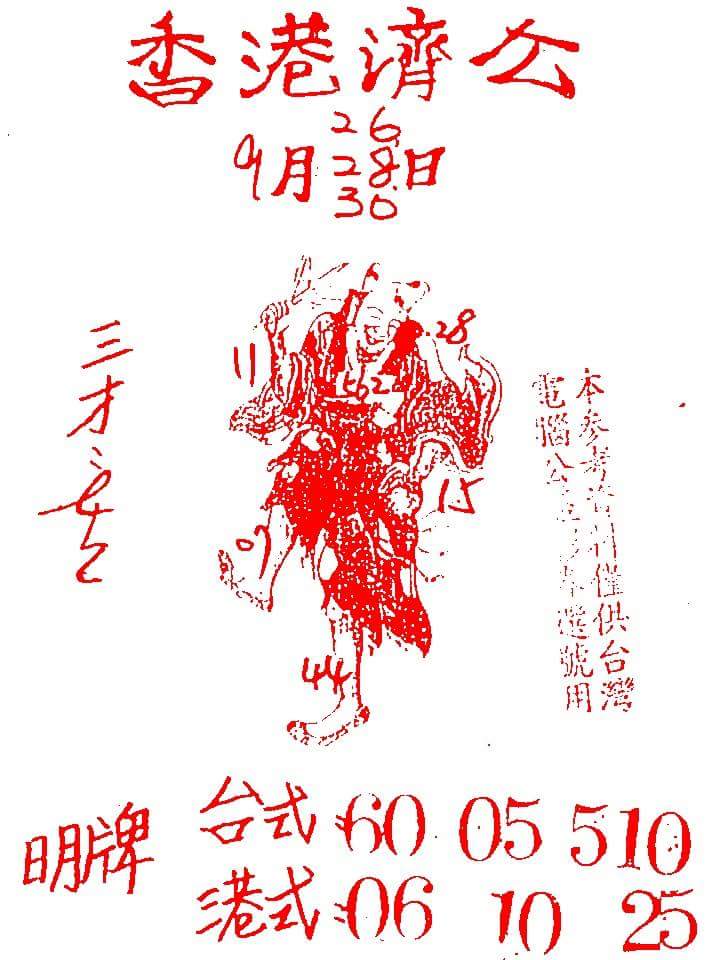 香港濟公
9月 26 28 30 日
三才
11
28
15
07
44
本參考資料僅供台灣
電腦公 選號用
明牌
台式:60 05 510
港式:06 10 25